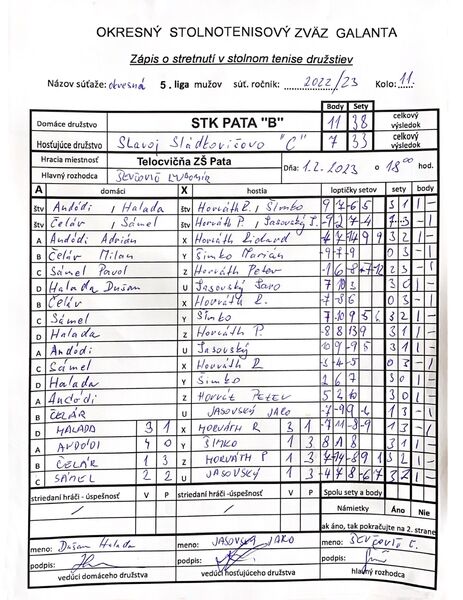 OKRESNÝ STOLNOTENISOVÝ ZVÄZ GALANTA
Zápis o stretnutí v stolnom tenise družstiev
Názov súťaže: okresná 5. liga mužov súť. ročník: 2022/23 Kolo: 11.
Body Sety
Domáce družstvo STK PATA "B" 11 38 celkový výsledok
Hosťujúce družstvo Slavoj Sládkovičovo "C" 7 33 celkový výsledok
Hracia miestnosť Telocvičňa ZŠ Pata Dňa: 1.2.2023 o 18 00 hod.
Hlavný rozhodca
A domáci X hostia loptičky setov sety body
štv Andódi, Halada štv Horváth R., Šimko 9 7 6 5 3 1 1 -
štv Čelár, Sámel štv Horváth P., Jasovský J.
A Andódi Adrián X Horváth Richard 3 2 1 -
B Čelár Milan Y Šimko Marián -9 -7 -9 0 3 - 1
C Sámel Pavol Z Horváth Peter 3 2 1 -
D Halada Dušan U Jasovský Jaro 7 10 3 3 0 1 -
B Čelár X Horváth R. -7 -8 6 0 3 - 1
C Sámel Y Šimko 3 2 1 -
D Halada Z Horváth P. 3 1 1 -
A Andódi U Jasovský 3 1 1 -
C Sámel X Horváth R -3 -4 -5 0 3 - 1
D Halada Y Šimko 2 6 7 3 0 1 -
A Andódi Z Horvát Peter 5 2 10 3 0 1 -
B ČELÁR U JASOVSKÝ JARO - 1
D HALADA 3 1 X HORVÁTH R 3 1 3 1 -
A ANDÓDI 4 0 Y ŠIMKO 1 3 8 1 8 3 1 1 -
B ČELÁR 1 3 Z HORVÁTH P 1 3 3 2 1 -
C SÁMEL 2 2 U JASOVSKÝ 1 3 3 2 1 -
striedaní hráči - úspešnosť V P striedaní hráči - úspešnosť V P Spolu sety a body
Námietky Áno Nie
ak áno, tak pokračujte na 2. strane
meno: Dušan Halada meno: JASOVSKÝ JARO meno:
podpis: podpis: podpis:
vedúci domáceho družstva vedúci hosťujúceho družstva hlavný rozhodca